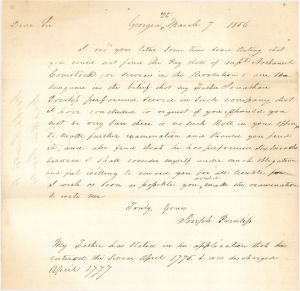 Dear Sir Georgia, Vt March 7 1856
I recd your letter some time since stating that
you could not find the Pay Roll of Capt. Nathaniel
Comstock for Services in the Revolution & am so
sanguine in the belief that my Father Jonathan
performed service in such company that
I am concluded to request if you should you
not be very sure there is no such Roll in your office
to make further examination and should you find
it, and also find that he has performed
service I shall consider myself under much obligation
and just willing to reward you for all trouble
I wish as soon as possible you would make the examination
& write me
Truly Yours
Joseph
My Father has stated in his application that he
entered the service April 1775. & was discharged
April 1777